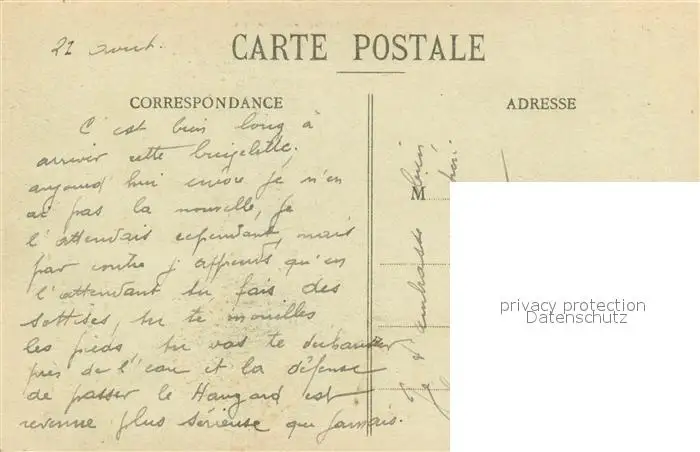 21 aout.
CARTE POSTALE
CORRESPONDANCE
ADRESSE
C'est bien long à
arriver cette
aujourd'hui encore je n'en
ai pas la nouvelle, je
l'attendais cependant, mais
par contre j'apprends qu'en
l'attendant tu fais des
sottises, tu te mouilles
les pieds tu vas te
près de l'eau et la défense
de passer le Hangard est
revenue plus sérieuse que jamais.
M
Je t'embrasse
privacy protection
Datenschutz